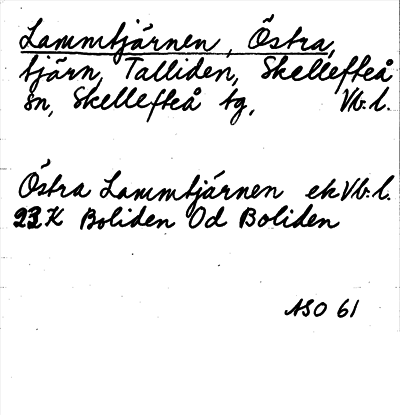 Lammtjärnen, Östra,
tjärn, Talliden, Skellefteå
sn, Skellefteå tg, Vb. l.
Östra Lammtjärnen ek Vb. l.
23K Boliden Od Boliden
ASO 61